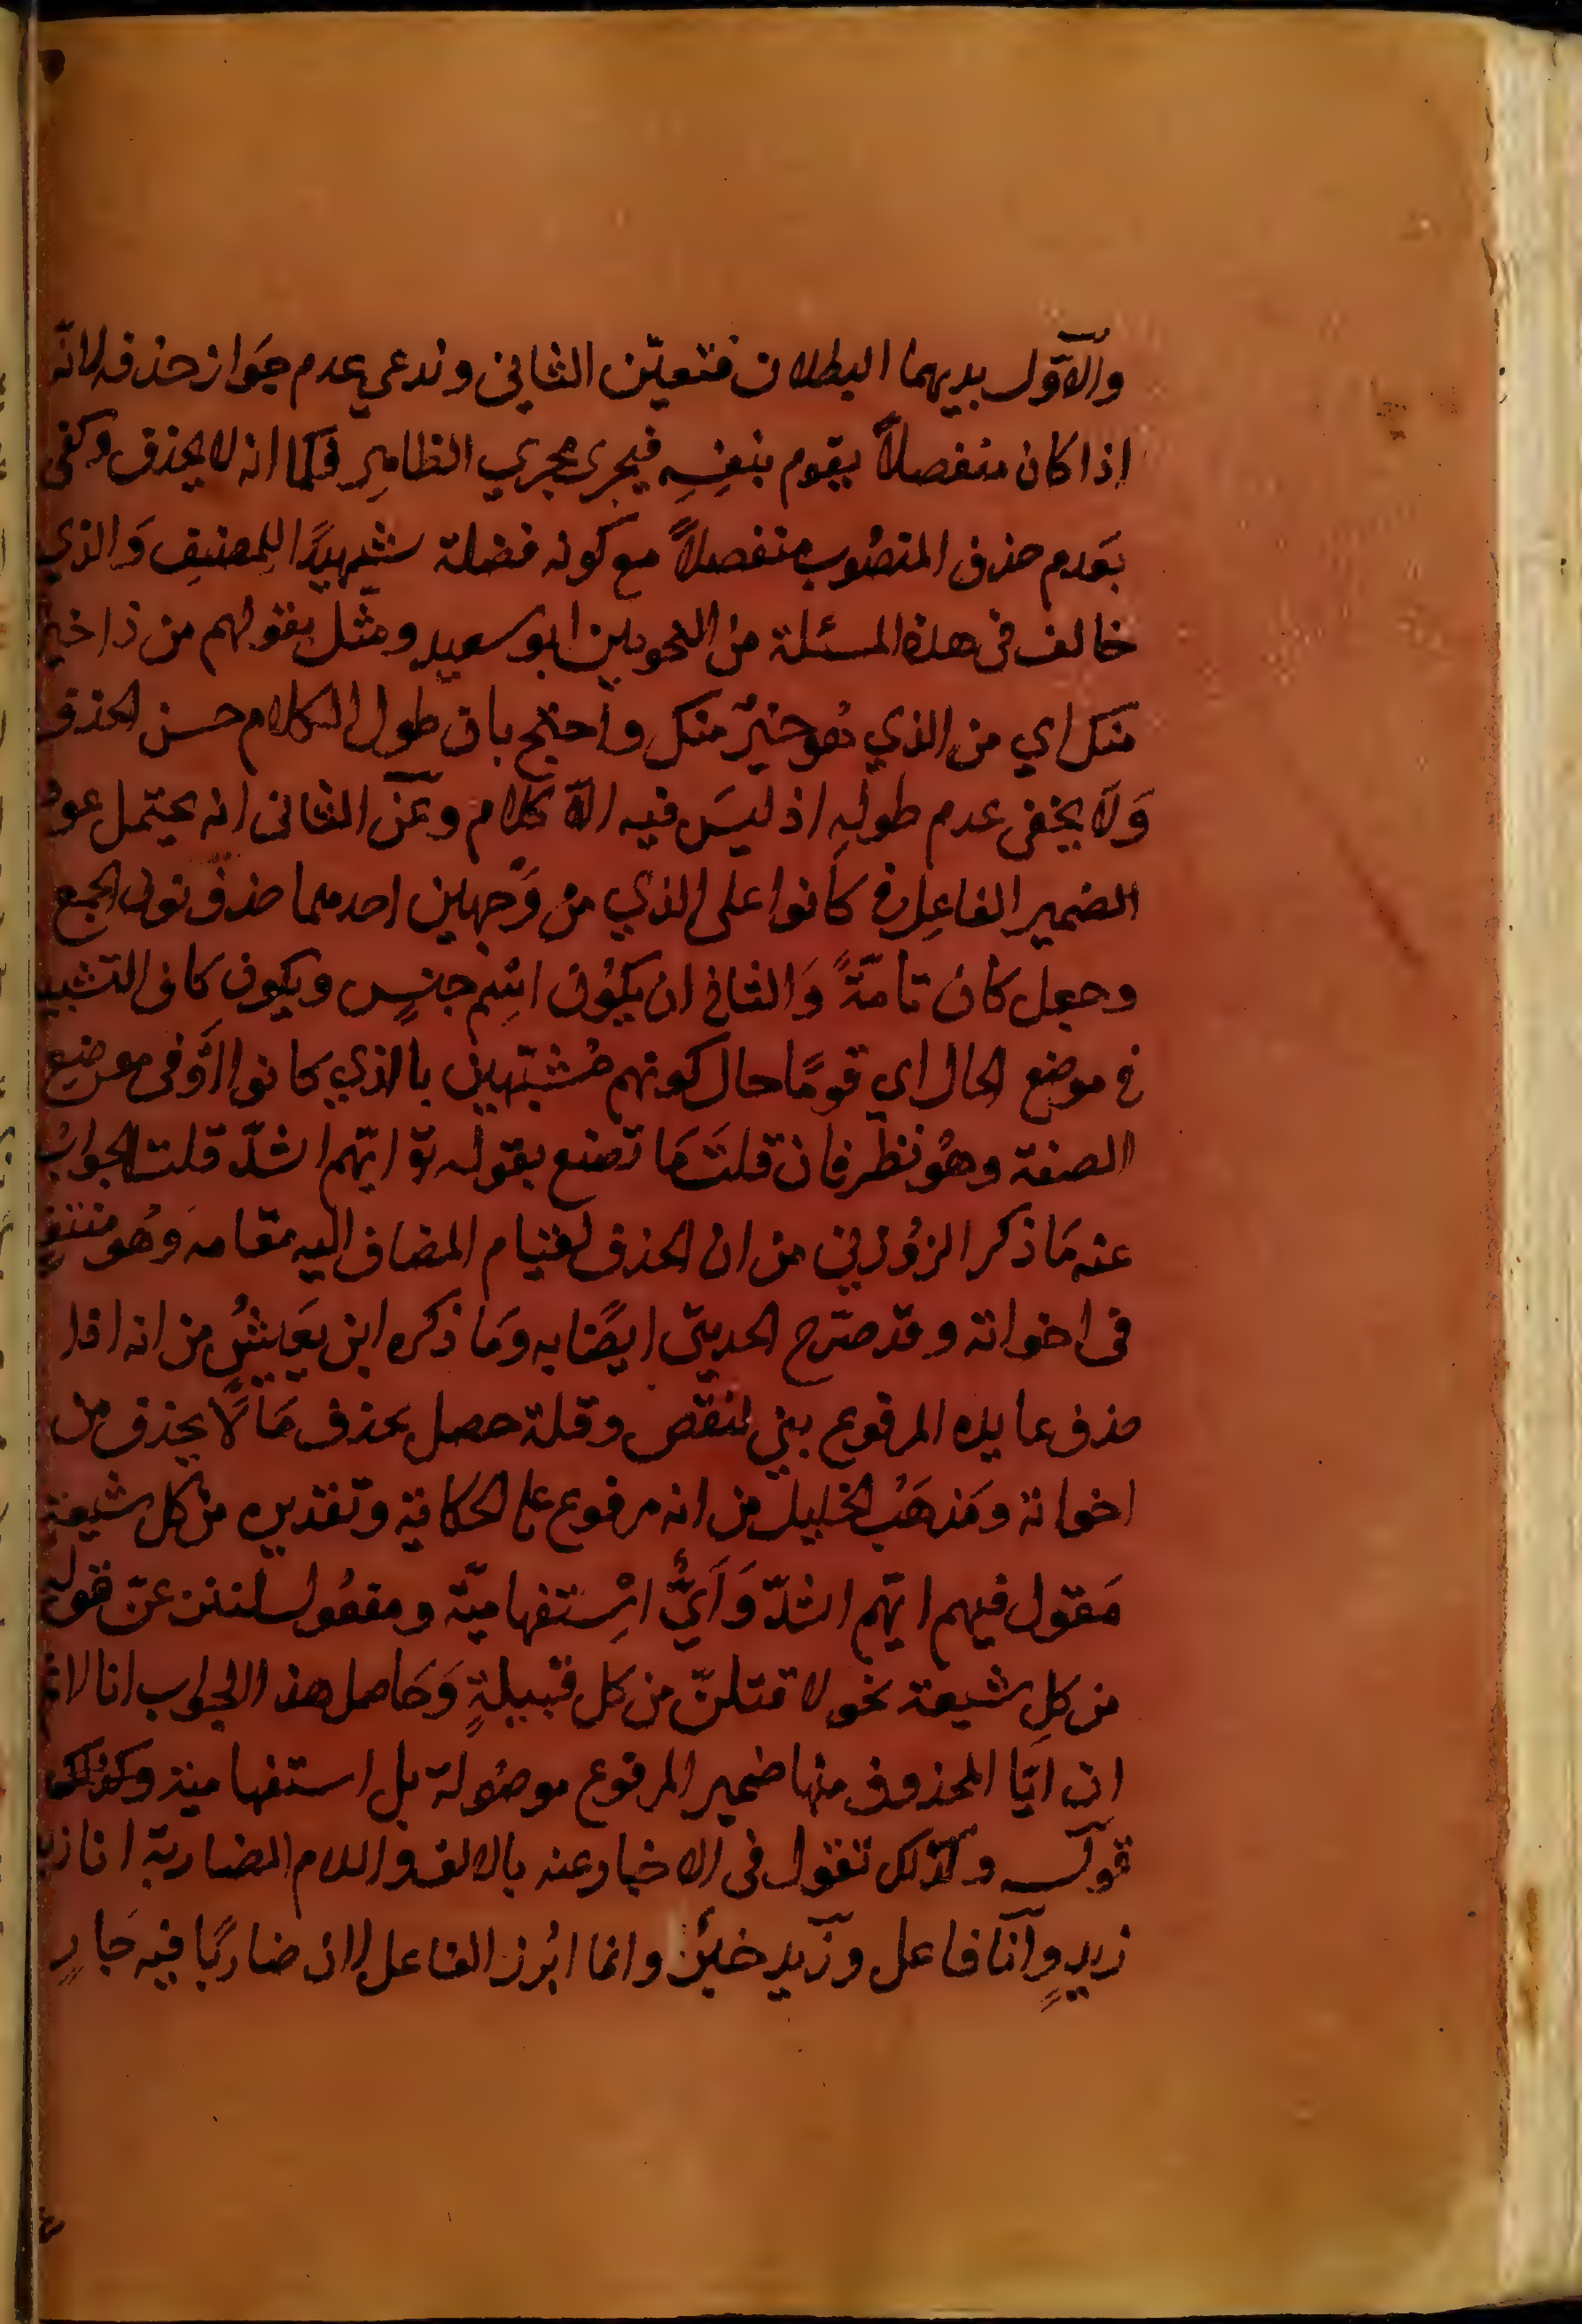 والاول بديهما البطلان فتعيّن الثاني وندعي عدم جَواز حذفه لانّه
اذا كان منفصلاً يقوم بنفسِهِ فيجرى مجري الظاهِرِ فكما انه لا يحذف وكفى
بعَدم حذف المنصُوب منفصلاً مع كونه فضلة شهيدًا للمصنِفِ وَالذي
خالف فى هذه المسئلة من النحويين ابو سعيد ومثّل بقولهم من ذا خير
منك اي من الذي هُو خيرٌ منك واحتج بان طول الكلام حسن الحذف
وَلَا يخفى عدم طولهِ اذ ليسَ فيه الّا كلام وعَن الثانى انه يحتمل عود
الضمير الفاعل في كانوا على الذي من وَجهين احدهما حذف نون الجمع
وجعل كان تامّةً وَالثانى ان يكوُن اسْم جنسٍ ويكون كاف التشبيه
في موضع الحال اي قومًا حال كونهم مُشبّهين بالذي كانوا اَو فى موضع
الصفة وهُو نظر فان قلتَ مَا تصنع بقوله تع ايّهم اشدّ قلت الجوابُ
عنه مَا ذكر الزوُزني من ان الحذف لقيام المضاف اليه مقامه وَهُو منتفٍ
فى اخواته وقد صرّح الحديثي ايضًا به وَمَا ذكره ابن يَعَيشُ من انه اذا
حذف عايده المرفوع بني لنقص وقلة حصل بحذف مَا لَا يحذف من
اخواته ومَذهَبُ الخليل من انه مرفوع على الحكاية وتقديره من كل شيعة
مَقول فيهم ايّهم اشدّ وَاَيُّ اسْتفهاميّة ومفعُول لننزعنّ قوله
من كلِ شيعة نحو لاقتلنّ من كل قبيلةٍ وَحَاصل هذا الجواب انا لا
ان ايّا المحذوف منها ضمير المرفوع موصُولة بل استفهامية وكذلك
قوله وكذلك تقول فى الاخبار عنه بالالف واللام الضاربة انا زيد
زيدٍ وانَا فاعل وزَيد خبرٌ وانما ابُرز الفاعل لان ضاربًا فيه جَارٍ